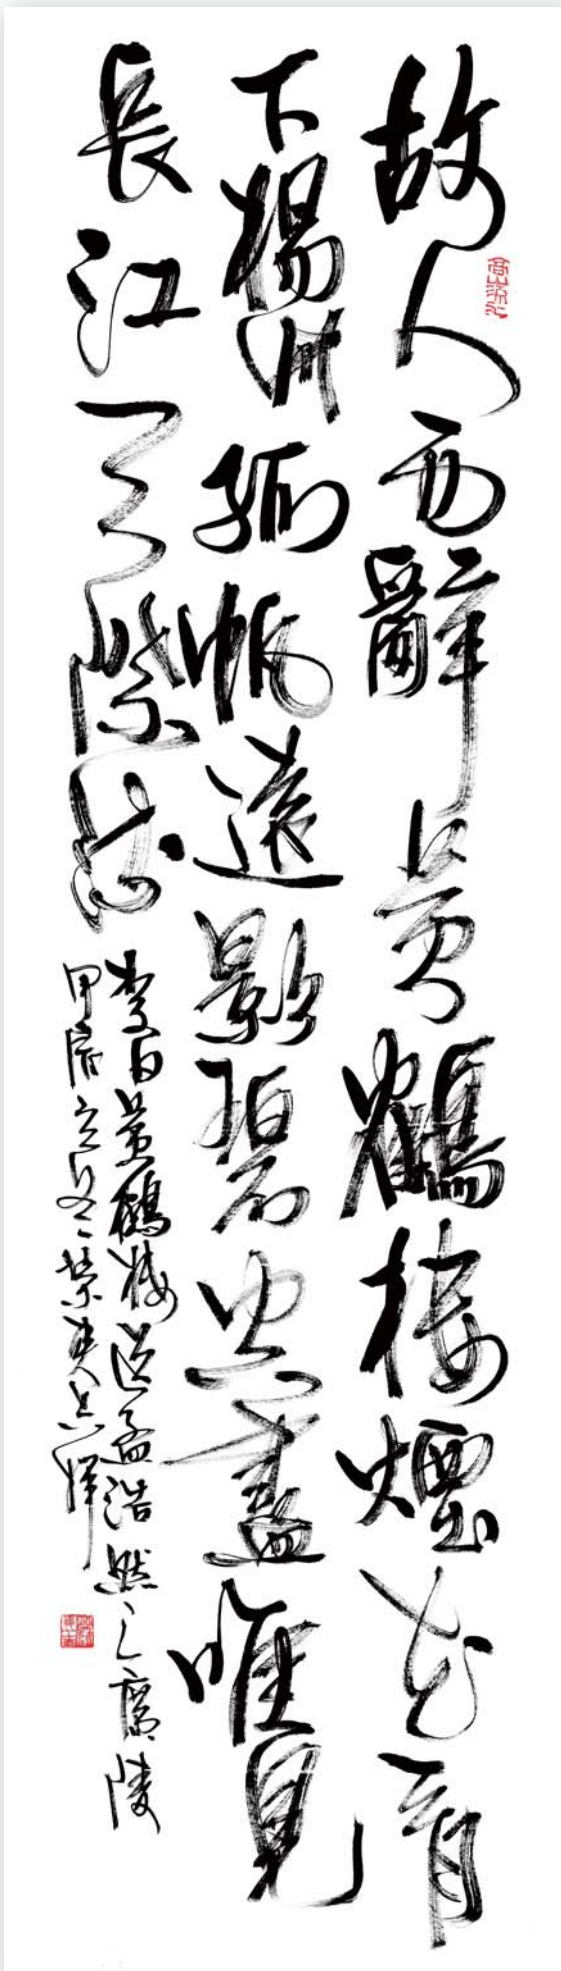 故人西辭黃鶴樓煙花三月
下楊州孤帆遠影碧空盡唯見
長江天際流
李白黃鶴樓送孟浩然之廣陵
甲辰立冬